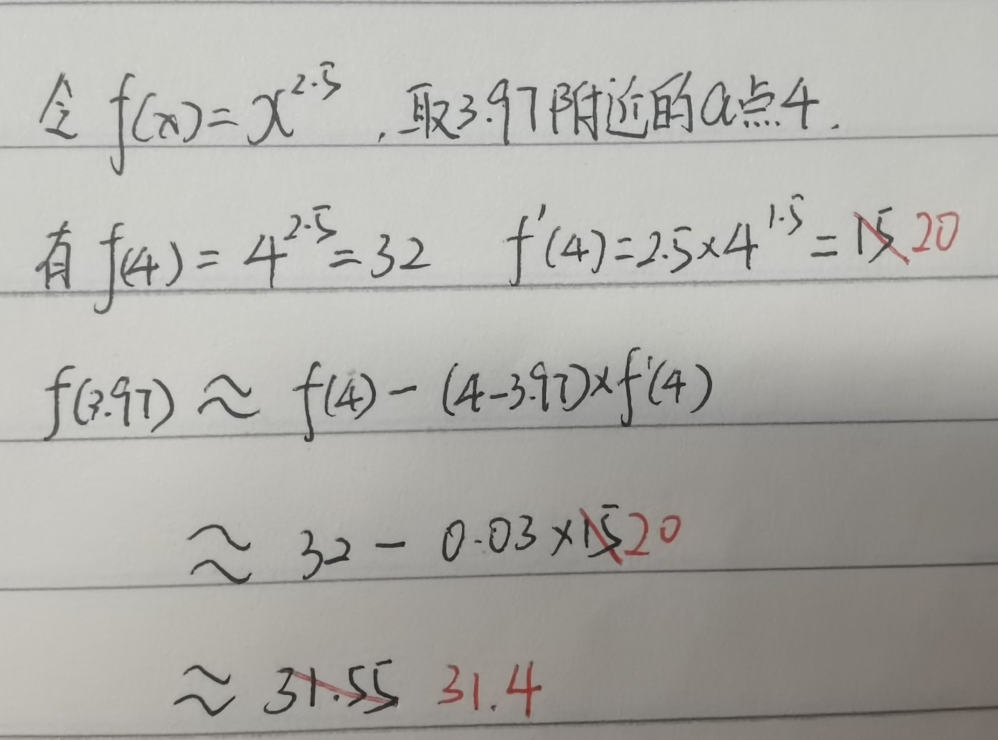 令 f(x)=x^2.5 , 取3.97附近的a点4.
有 f(4)=4^2.5=32 f'(4)=2.5×4^1.5=15 20
f(3.97) ≈ f(4)-(4-3.97)×f'(4)
≈ 32-0.03×15 20
≈ 31.55 31.4